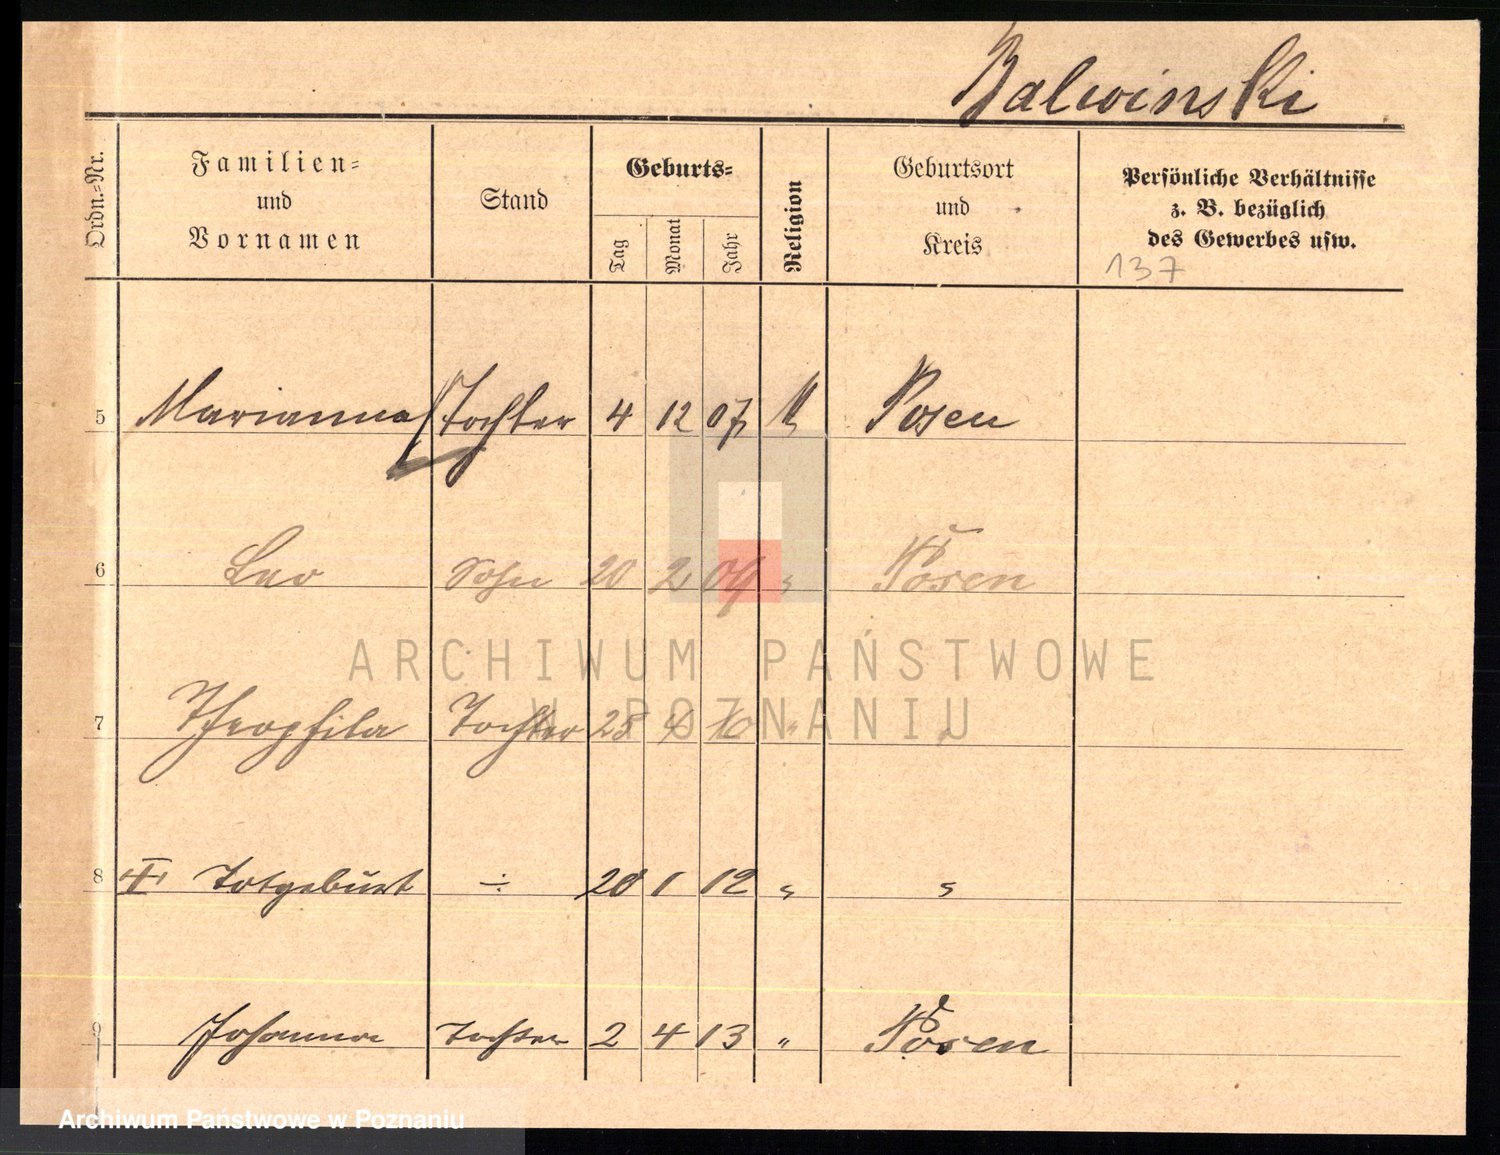 Balwinski
Ordn.=Nr.
Familien=
und
Vornamen
Stand
Geburts=
Tag
Monat
Jahr
Religion
Geburtsort
und
Kreis
Persönliche Verhältnisse
z. B. bezüglich
des Gewerbes usw.
137
5 Marianna Tochter 4 12 07 Posen
6 Leo Sohn 20 2 09 " Posen
7 Theophila Tochter 28 4 10 " "
8 Totgeburt ÷ 20 1 12 " "
9 Johanna Tochter 2 4 13 " Posen
ARCHIWUM PAŃSTWOWE
W POZNANIU
Archiwum Państwowe w Poznaniu